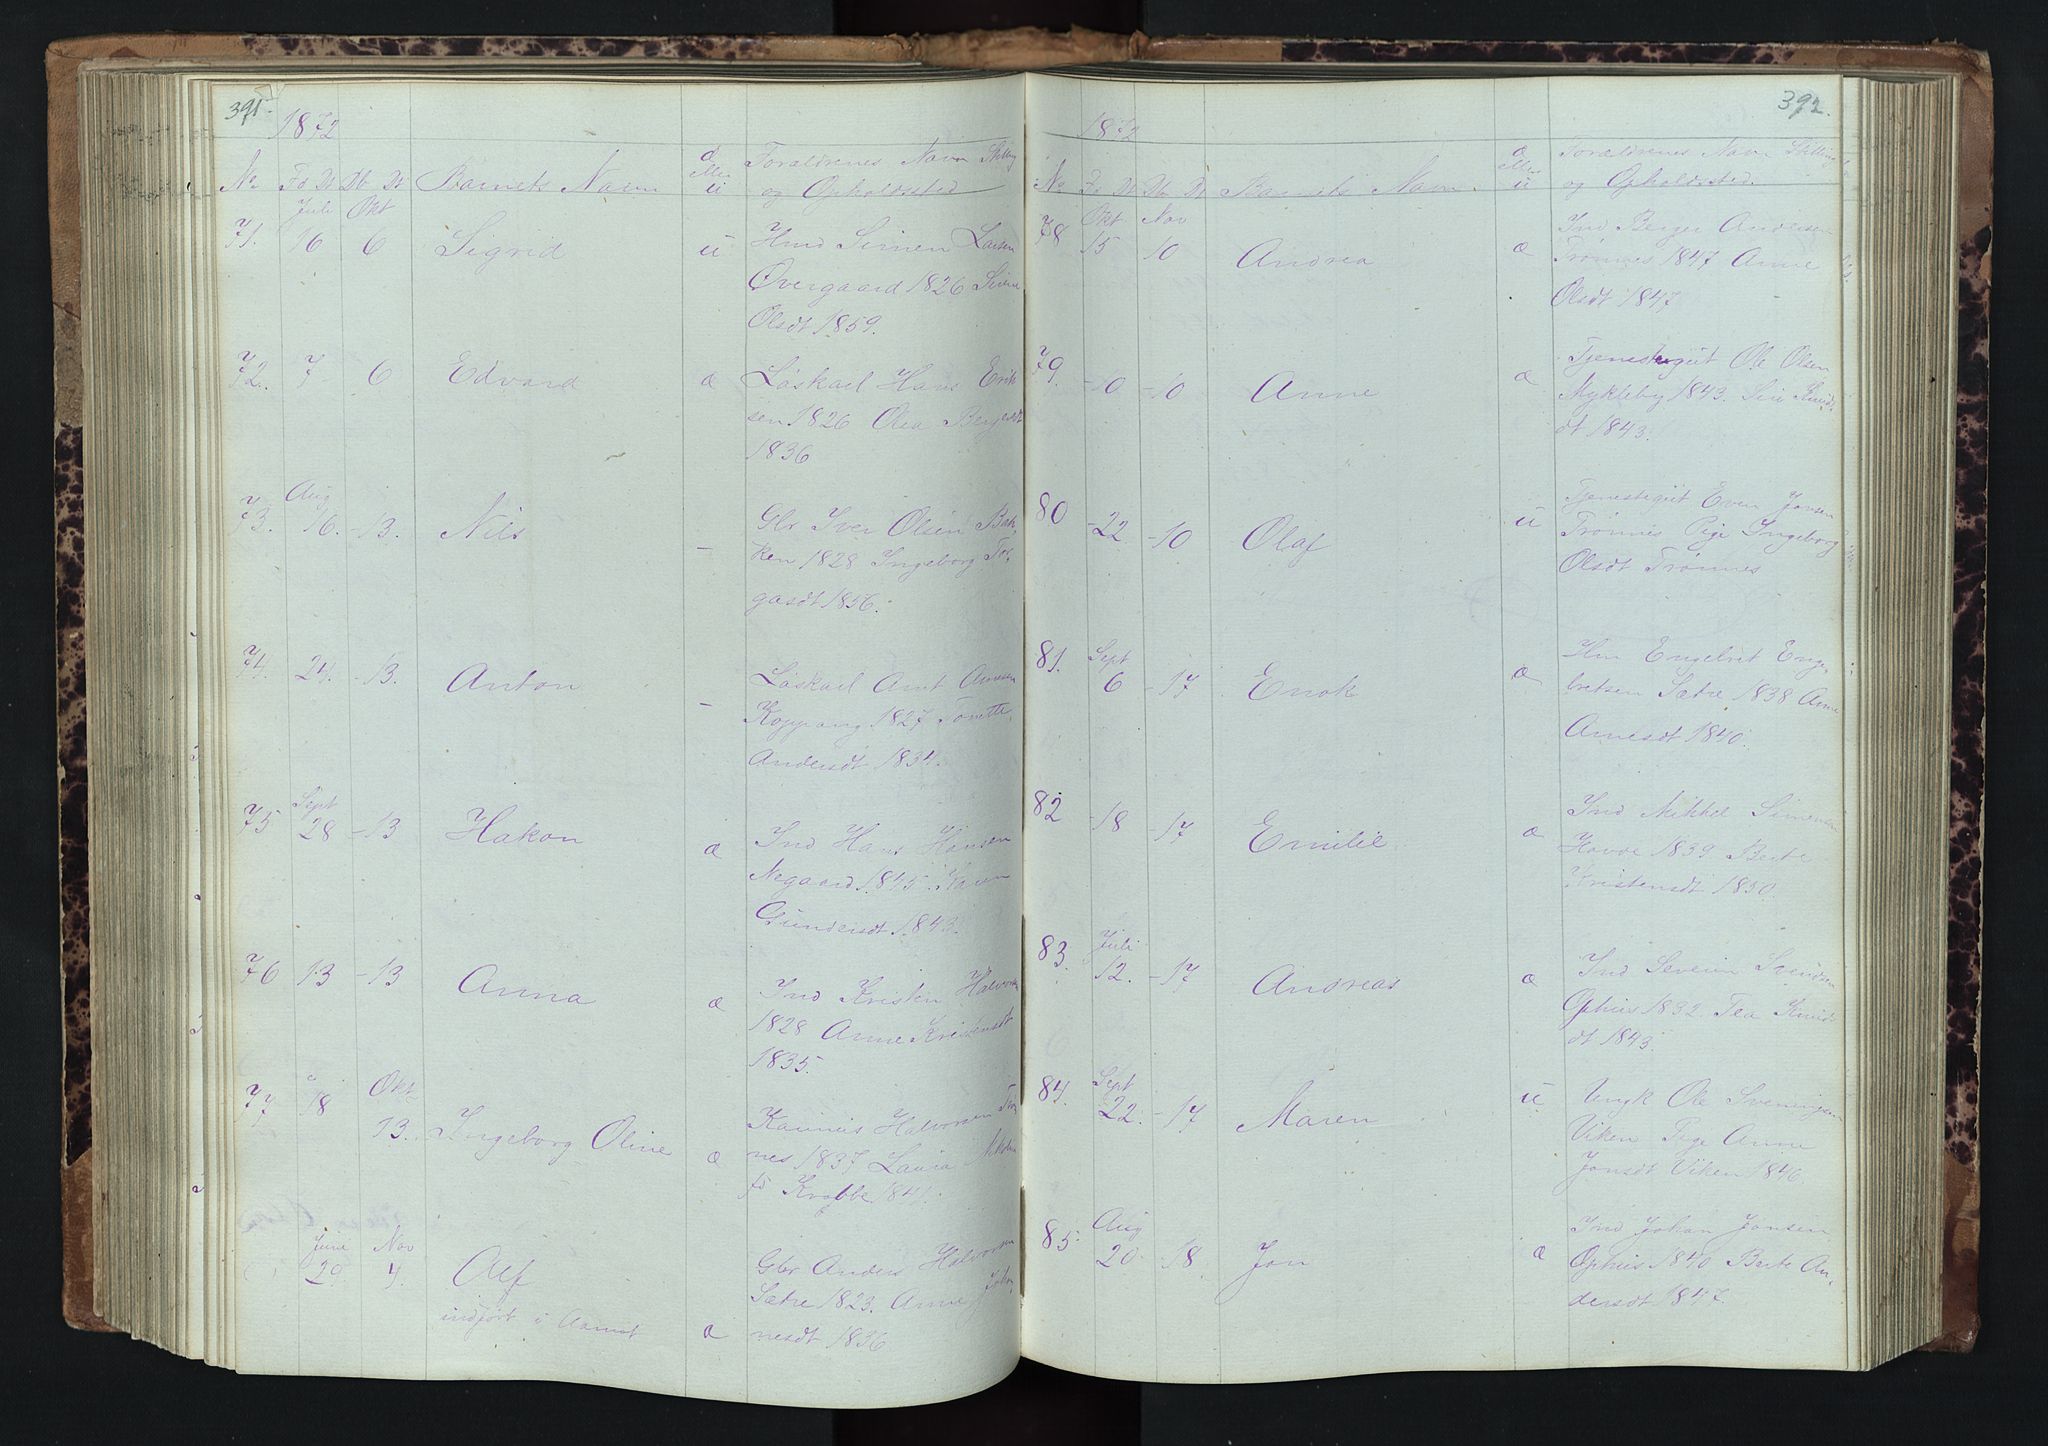 391.
1872
No Fd Dt Db Dt Barnets Navn æ eller u Forældrenes Navn Stilling
og Opholdssted
Juli Okt
71. 16 6 Sigrid u Hmd Simen Larsen
Øvergaard 1826
Olsdt 1859.
72. 7 6 Edvard æ Løskarl Hans Erik
sen 1826 Olea Bergersdt
1836
Aug
73. 16. -13. Nils - Gbr Iver Olsen Bak
ken 1828 Ingeborg Tor
gasdt 1856.
74. 24. -13. Anton - Løskarl Arnt Arnesen
Koppang 1827 Tonette
Andersdt 1834.
Sept
75 28 -13 Hakon æ Ind Hans Hansen
Negaard 1845. Karen
Gundersdt 1843.
76 13 -13 Anna æ Ind Kristen Halvorsen
1828 Anne Kristensdt
1835.
Okt
77 18 13. Ingeborg Oline æ Halvorsen Trø
nes 1837 Laura
fd Krabbe 1841.
Juni Nov
20 4. Alf Gbr Anders Halvorsen
Sætre 1823. Anne Johan
indført i Aamot æ nesdt 1836
392.
1872
No Fd Dt Db Dt Barnets Navn æ eller u Forældrenes Navn Stilling
og Opholdssted.
Okt Nov
78 15 10 Andrea æ Ind Berger Andersen
Trønnes 1847 Anne
Olsdt 1847
79. -10 -10 Anne æ Tjenestegut Ole Olsen
Mykleby 1843. Siri Knuds
dt 1843.
80 -22 -10 Olaf u Tjenestegut Even Jonsen
Trønnes Pige Ingeborg
Olsdt Trønnes
Sept
81. 6 -17 Enok æ Hm Engebret Enge
bretsen Sætre 1838 Anne
Arnesdt 1840.
82 -18 -17 Emilie æ Ind Mikkel Simensen
Hovde 1839 Berte
Kristensdt 1830.
Juli
83. 12. -17 Andreas æ Ind Severin Svendsen
Ophus 1832. Tea Knuds
dt 1843.
Sept
84. 22. -17 Maren u Ungk Ole Svenningsen
Viken Pige Anne
Jonsdt Viken 1846.
Aug
85. 20 -18. Jon æ Ind Johan Jonsen
Ophus 1840 Berte An-
dersdt 1847.